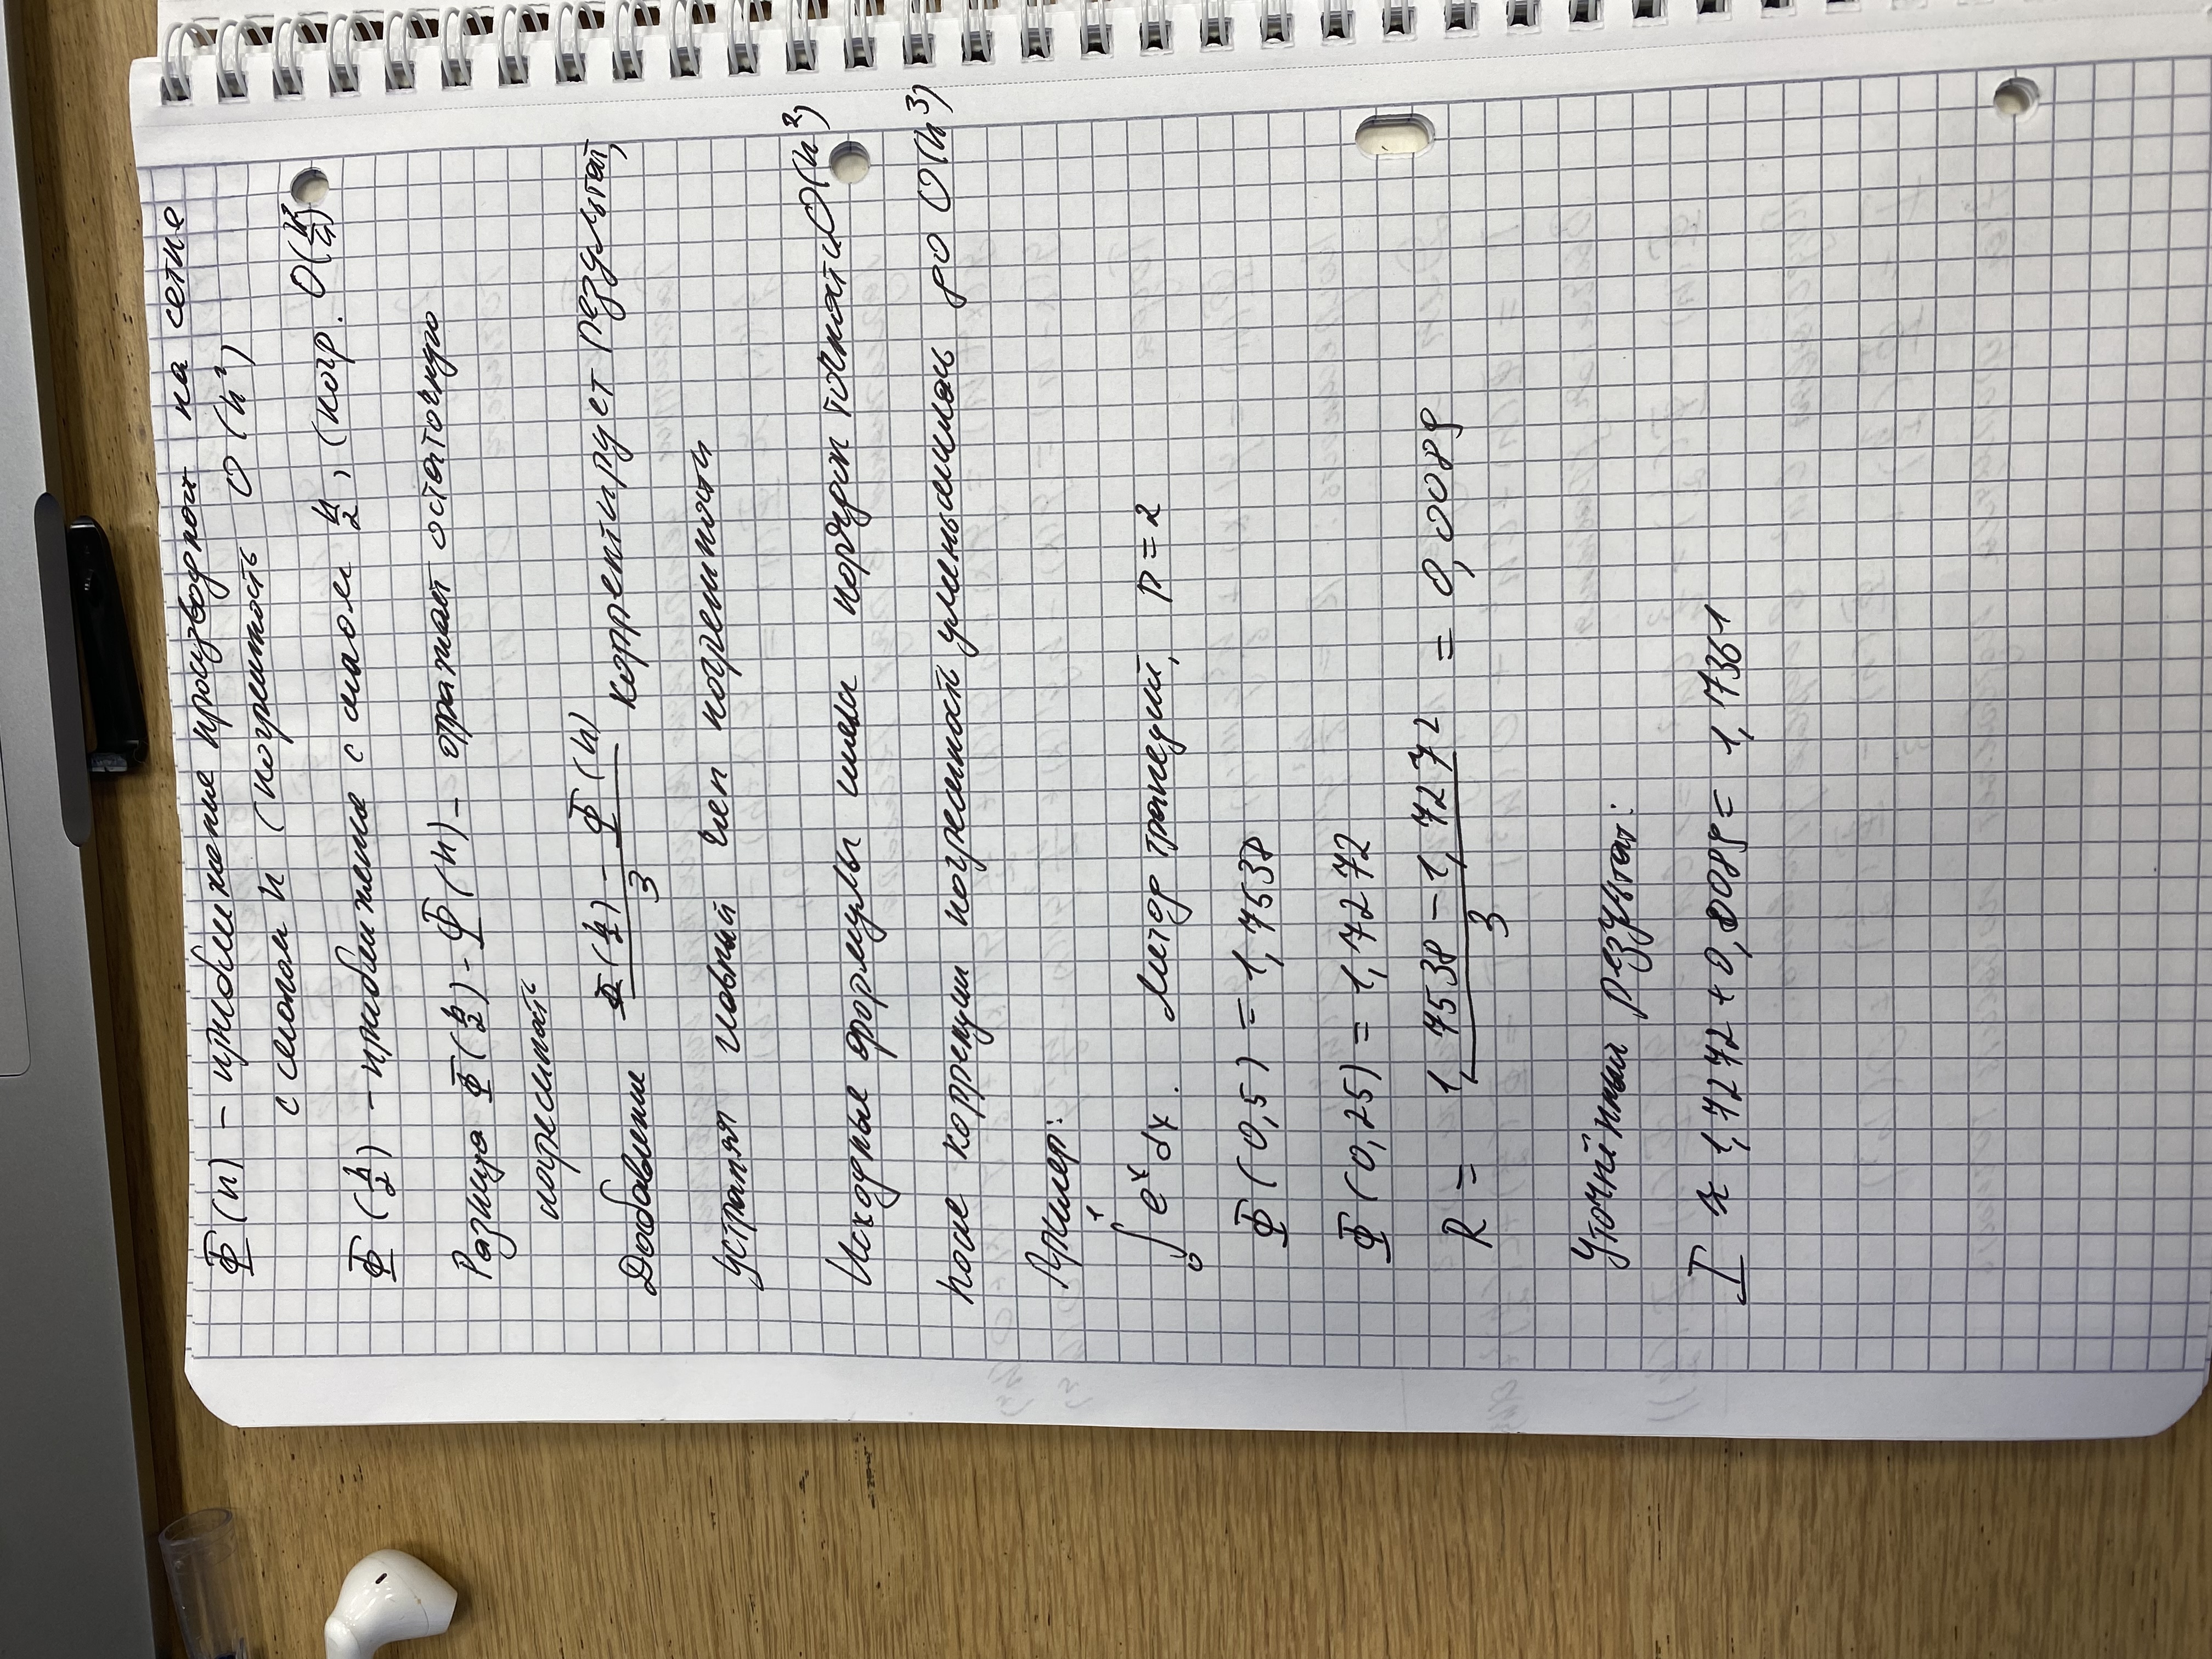 Ф(h) – приближение производной на сетке
с шагом h (погрешность O(h²)
Ф(h/2) – приближение с шагом h/2, (погр. O(h²/4)
Разница Ф(h/2) - Ф(h) – отражает остаточную
погрешность
Добавление (Ф(h/2) - Ф(h))/3 корректирует результат,
устраняя главный член погрешности
Исходные формулы имели порядок точности O(h²)
После коррекции погрешность уменьшилась до O(h³)
Пример:
∫₀¹ eˣ dx. Метод трапеций, p=2
Ф(0,5) = 1,7538
Ф(0,25) = 1,7272
R = (1,7538 – 1,7272)/3 = 0,0089
Уточнённый результат:
I ≈ 1,7272 + 0,0089 = 1,7361